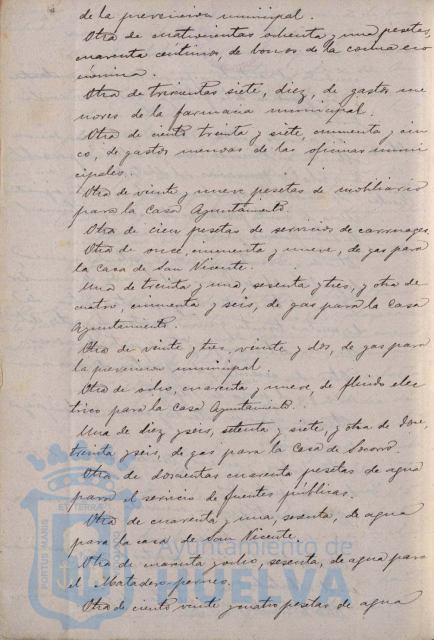 de la prevencion municipal.
Otra de cuatrocientas ochenta y una pesetas,
cuarenta céntimos, de bonos de la cocina eco
nómica.
Otra de trescientas siete, diez, de gastos me
nores de la farmacia municipal.
Otra de ciento treinta y siete, cincuenta y cin
co, de gastos menores de las oficinas muni
cipales.
Otra de veinte y nueve pesetas de mobiliario
para la Casa Ayuntamiento.
Otra de cien pesetas de servicios de carruages.
Otra de once, cincuenta y nueve, de gas para
la Casa de San Vicente.
Una de treinta y una, sesenta y tres, y otra de
cuatro, cincuenta y seis, de gas para la Casa
Ayuntamiento.
Otra de veinte y tres, veinte y dos, de gas para
la prevencion municipal.
Otra de ocho, cuarenta y nueve, de fluido elec
trico para la Casa Ayuntamiento.
Una de diez y seis, setenta y siete, y otra de doce,
treinta y seis, de gas para la Casa de Socorro.
Otra de doscientas cuarenta pesetas de agua
para el servicio de fuentes públicas.
Otra de cuarenta y una, sesenta, de agua
para la casa de San Vicente.
Otra de cuarenta y ocho, sesenta, de agua para
el Matadero
Otra de ciento veinte y cuatro pesetas de agua
PORTUS MARIS
ET TERRAE
Ayuntamiento de
HUELVA